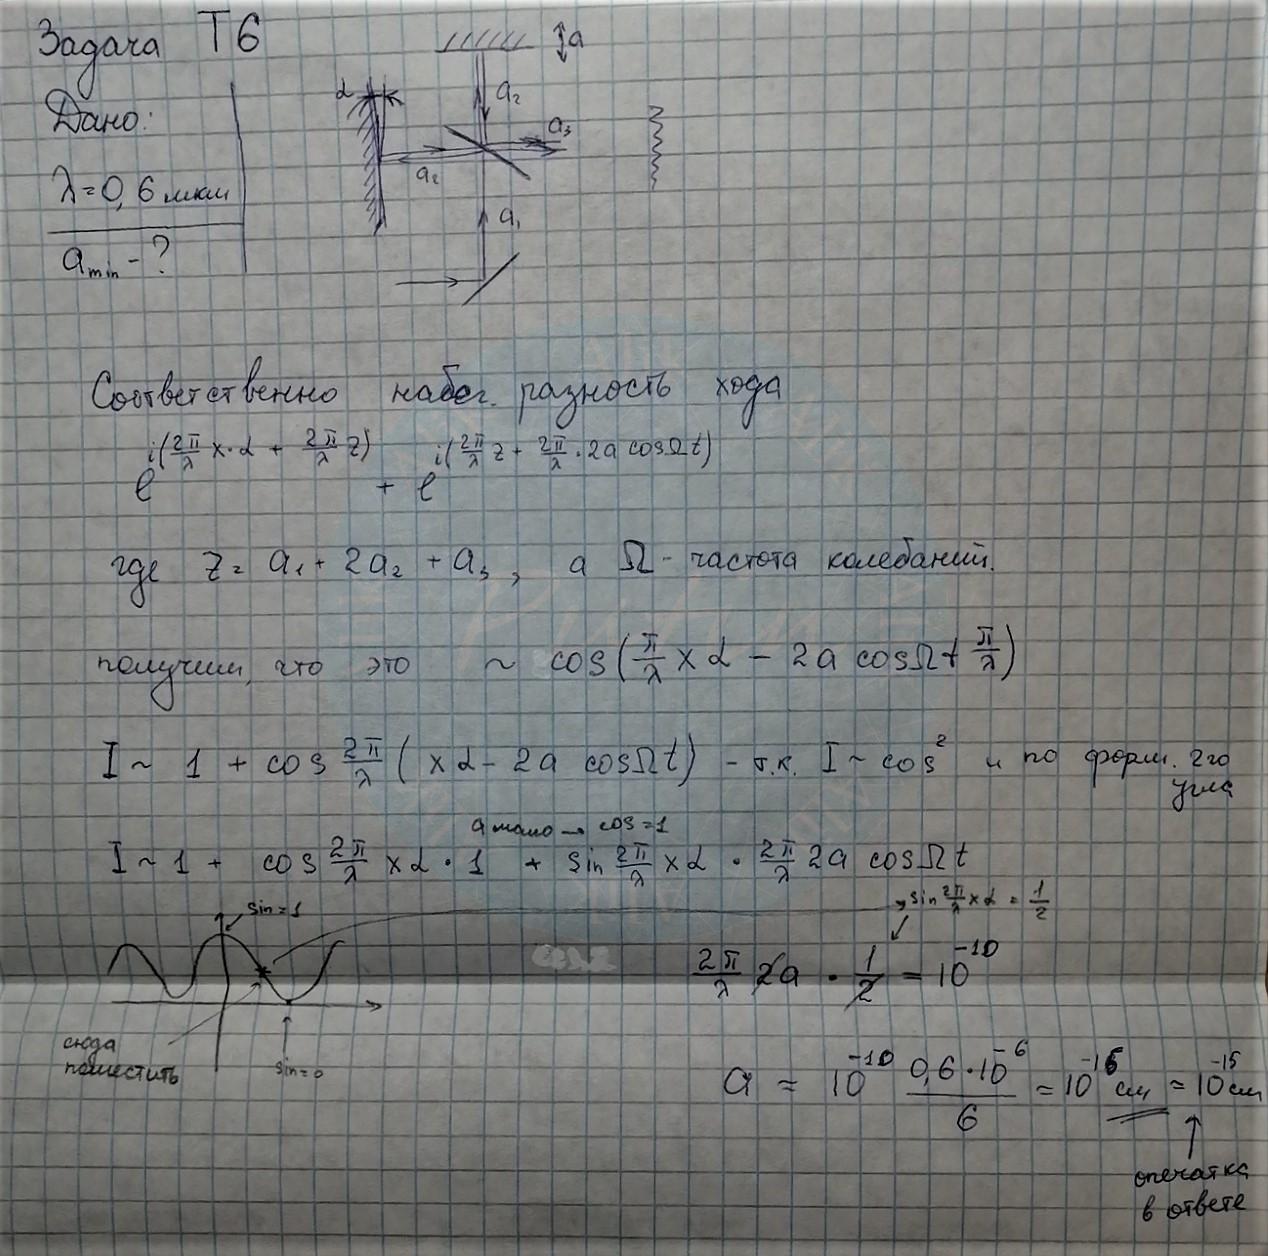 Задача Т6
Дано:
λ=0,6 мкм
a_min - ?
α
a
a₂
a₃
a₂
a₁
Соответственно набег. разность хода
e^{i(2π/λ x·α + 2π/λ z)} + e^{i(2π/λ z + 2π/λ · 2a cosΩt)}
где z = a₁ + 2a₂ + a₃, а Ω - частота колебаний.
получим, что это ~ cos(π/λ xα − 2a cosΩt π/λ)
I ~ 1 + cos 2π/λ (xα − 2a cosΩt) - т.к. I ~ cos² и по форм. 2го
угла
a мало → cos=1
I ~ 1 + cos 2π/λ xα · 1 + sin 2π/λ xα · 2π/λ 2a cosΩt
sin=1
sin 2π/λ xα = 1/2
2π/λ 2a · 1/2 = 10^{-10}
сюда
поместить
sin=0
a ≈ 10^{-10} 0,6·10^{-6}/6 = 10^{-16} см = 10^{-15} см
опечатка
в ответе